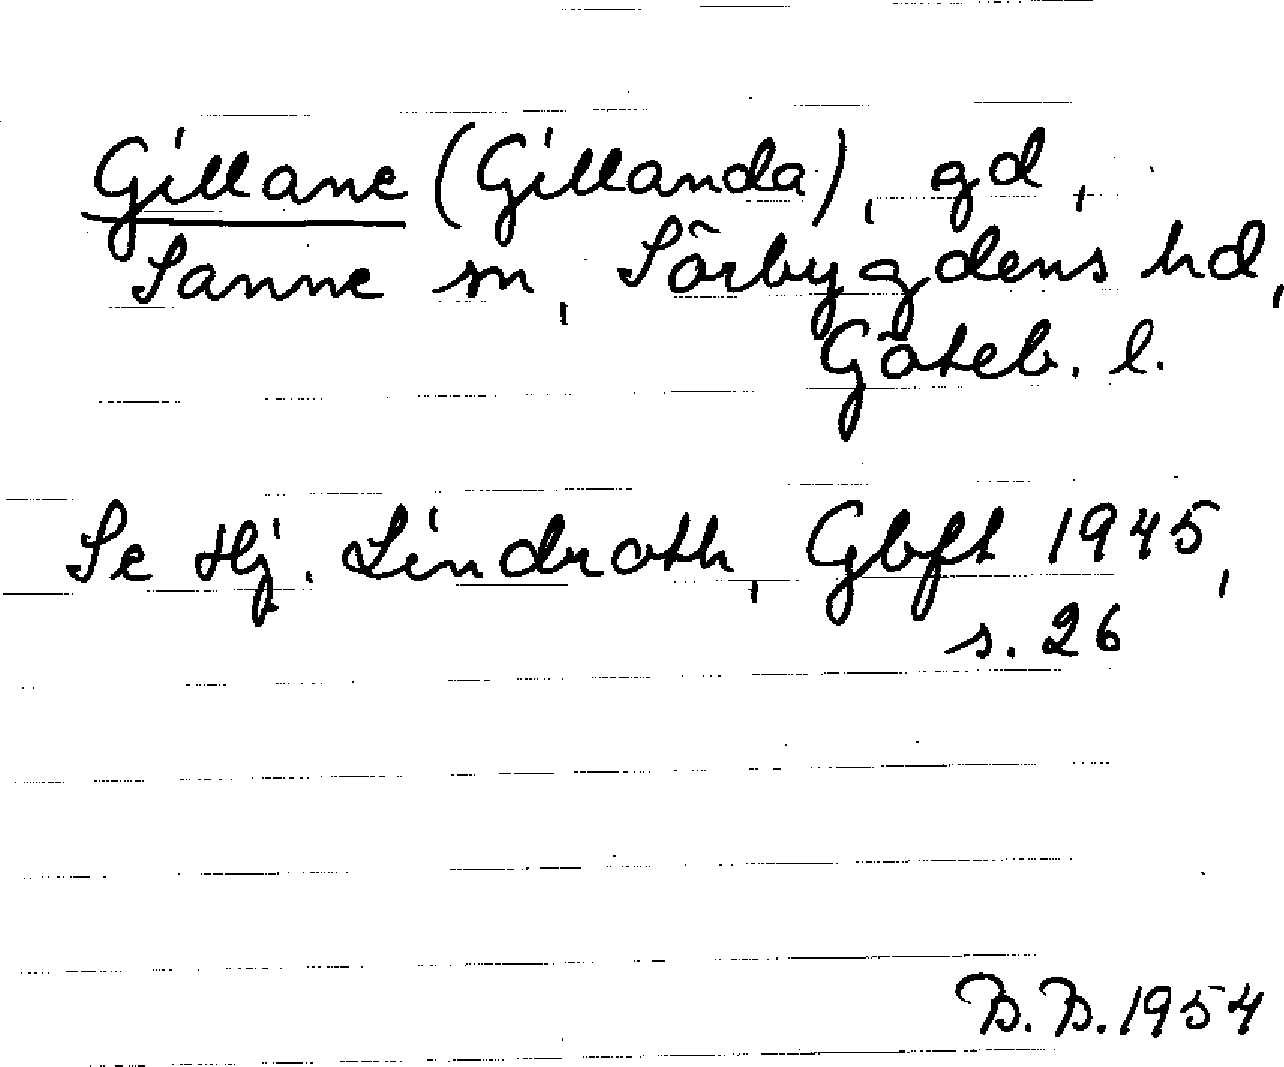 Gillane (Gillanda), gd,
Sanne sn, Sörbygdens hd,
Göteb. l.
Se Hj. Lindroth, Gbft 1945,
s. 26
B.B. 1954